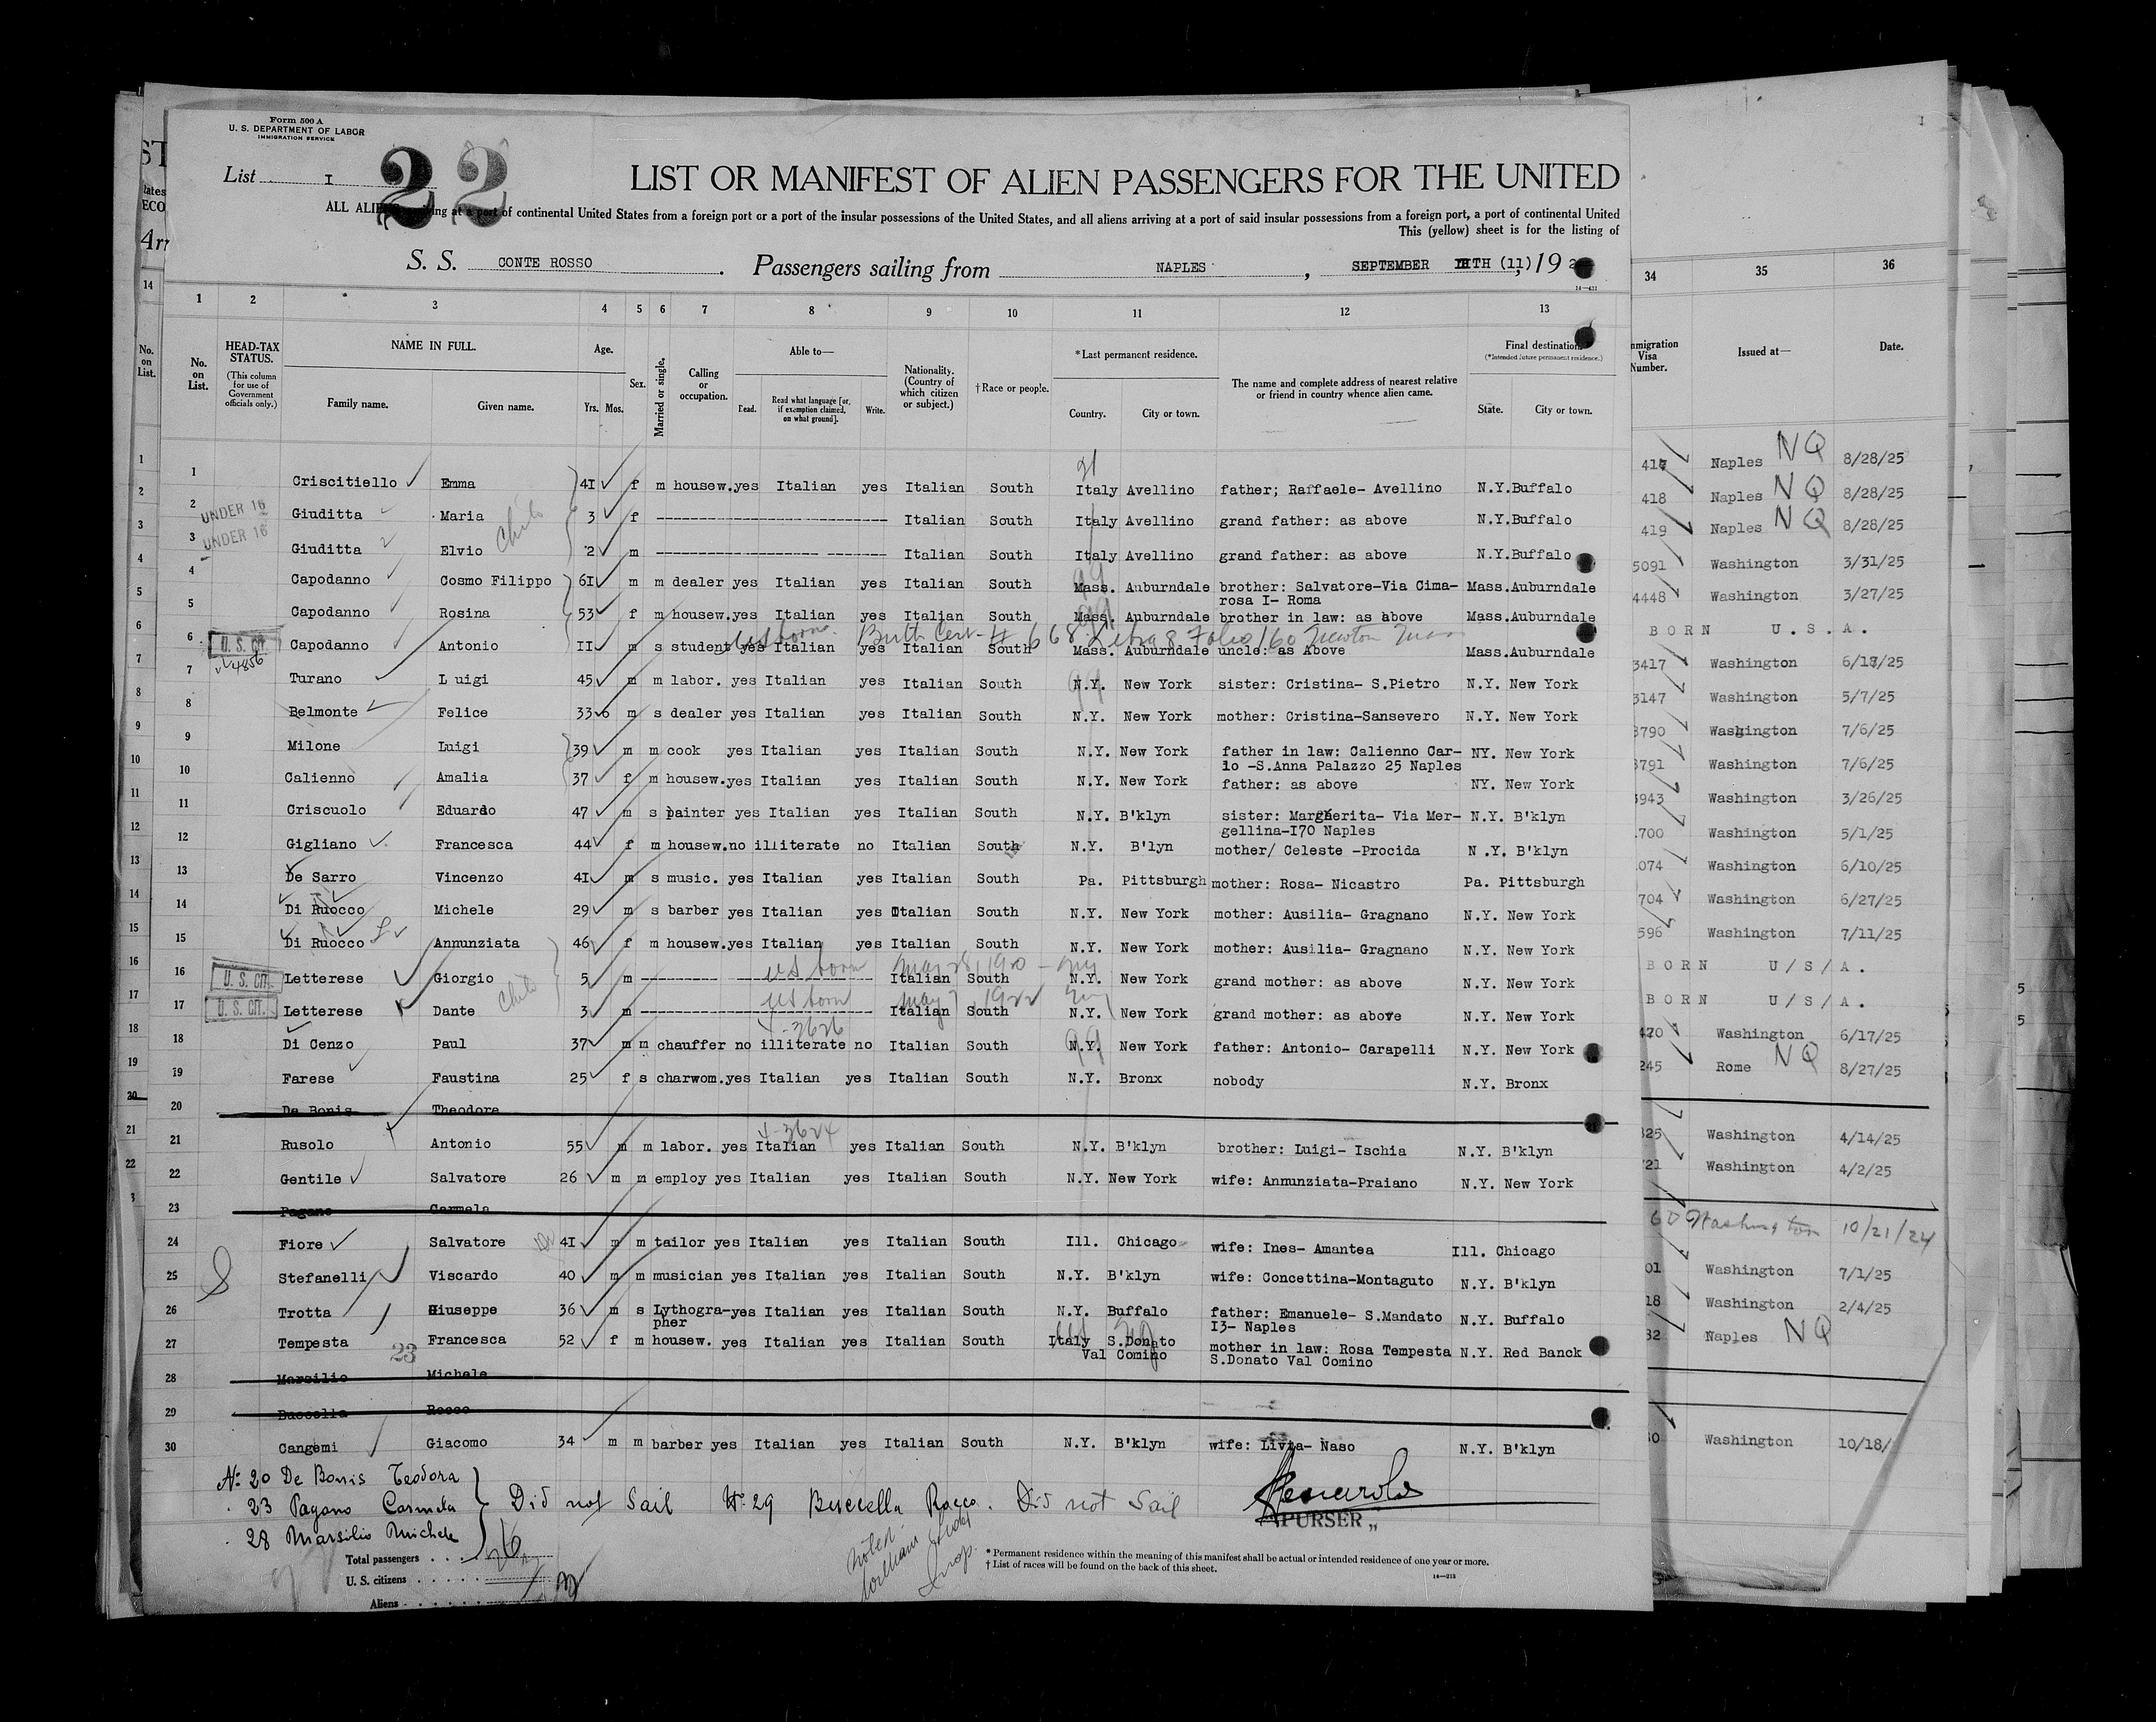 Form 500 A
U. S. DEPARTMENT OF LABOR
IMMIGRATION SERVICE
List I
22
LIST OR MANIFEST OF ALIEN PASSENGERS FOR THE UNITED
ALL ALIENS arriving at a port of continental United States from a foreign port or a port of the insular possessions of the United States, and all aliens arriving at a port of said insular possessions from a foreign port, a port of continental United
This (yellow) sheet is for the listing of
S. S. CONTE ROSSO . Passengers sailing from NAPLES , SEPTEMBER TH (11) , 19 2
14—431
1 2 3 4 5 6 7 8 9 10 11 12 13 34 35 36
No. on List. HEAD-TAX STATUS. (This column for use of Government officials only.) NAME IN FULL. Family name. Given name. Age. Yrs. Mos. Sex. Married or single. Calling or occupation. Able to— Read. Read what language [or, if exemption claimed, on what ground]. Write. Nationality. (Country of which citizen or subject.) † Race or people. *Last permanent residence. Country. City or town. The name and complete address of nearest relative or friend in country whence alien came. Final destination (*Intended future permanent residence.) State. City or town. Immigration Visa Number. Issued at— Date.
1 Criscitiello Emma 4I f m housew. yes Italian yes Italian South Italy Avellino father; Raffaele- Avellino N.Y. Buffalo 417 Naples NQ 8/28/25
2 UNDER 16 Giuditta Maria 3 f Italian South Italy Avellino grand father: as above N.Y. Buffalo 418 Naples NQ 8/28/25
3 UNDER 16 Giuditta Elvio Child 2 m Italian South Italy Avellino grand father: as above N.Y. Buffalo 419 Naples NQ 8/28/25
4 Capodanno Cosmo Filippo 6I m m dealer yes Italian yes Italian South Mass. Auburndale brother: Salvatore-Via Cima- Mass. Auburndale 5091 Washington 3/31/25
rosa I- Roma
5 Capodanno Rosina 53 f m housew. yes Italian yes Italian South Mass. Auburndale brother in law: as above Mass. Auburndale 4448 Washington 3/27/25
US born Birth Cert-# 668 Libra 8 Folio 160 Newton Mass
6 U. S. CIT. Capodanno Antonio II m s student yes Italian yes Italian South Mass. Auburndale uncle: as Above Mass. Auburndale BORN U.S.A.
4856
7 Turano L uigi 45 m m labor. yes Italian yes Italian South N.Y. New York sister: Cristina- S.Pietro N.Y. New York 3417 Washington 6/17/25
8 Belmonte Felice 33 6 m s dealer yes Italian yes Italian South N.Y. New York mother: Cristina-Sansevero N.Y. New York 3147 Washington 5/7/25
9 Milone Luigi 39 m m cook yes Italian yes Italian South N.Y. New York father in law: Calienno Car- NY. New York 3790 Washington 7/6/25
lo -S.Anna Palazzo 25 Naples
10 Calienno Amalia 37 f m housew. yes Italian yes Italian South N.Y. New York father: as above NY. New York 3791 Washington 7/6/25
11 Criscuolo Eduardo 47 m s painter yes Italian yes Italian South N.Y. B'klyn sister: Margherita- Via Mer- N.Y. B'klyn 943 Washington 3/26/25
gellina-I70 Naples
12 Gigliano Francesca 44 f m housew. no illiterate no Italian South N.Y. B'lyn mother/ Celeste -Procida N .Y. B'klyn 700 Washington 5/1/25
13 De Sarro Vincenzo 4I m s music. yes Italian yes Italian South Pa. Pittsburgh mother: Rosa- Nicastro Pa. Pittsburgh 074 Washington 6/10/25
14 Di Ruocco Michele 29 m s barber yes Italian yes Italian South N.Y. New York mother: Ausilia- Gragnano N.Y. New York 704 Washington 6/27/25
15 Di Ruocco Annunziata 46 f m housew. yes Italian yes Italian South N.Y. New York mother: Ausilia- Gragnano N.Y. New York 596 Washington 7/11/25
16 U. S. CIT. Letterese Giorgio 5 m US born May 28, 1920 Italian South N.Y. New York grand mother: as above N.Y. New York BORN U/S/A.
17 U. S. CIT. Letterese Dante Child 3 m US born May 7, 1922 Italian South N.Y. New York grand mother: as above N.Y. New York BORN U/S/A.
4-3626
18 Di Cenzo Paul 37 m m chauffer no illiterate no Italian South N.Y. New York father: Antonio- Carapelli N.Y. New York 420 Washington 6/17/25
19 Farese Faustina 25 f s charwom. yes Italian yes Italian South N.Y. Bronx nobody N.Y. Bronx 245 Rome NQ 8/27/25
20 De Bonis Theodore
4-3624
21 Rusolo Antonio 55 m m labor. yes Italian yes Italian South N.Y. B'klyn brother: Luigi- Ischia N.Y. B'klyn 325 Washington 4/14/25
22 Gentile Salvatore 26 m m employ yes Italian yes Italian South N.Y. New York wife: Annunziata-Praiano N.Y. New York 721 Washington 4/2/25
23 Pagano Carmela
24 Fiore Salvatore 4I m m tailor yes Italian yes Italian South Ill. Chicago wife: Ines- Amantea Ill. Chicago 60 Washington 10/21/24
25 Stefanelli Viscardo 40 m m musician yes Italian yes Italian South N.Y. B'klyn wife: Concettina-Montaguto N.Y. B'klyn 01 Washington 7/1/25
26 Trotta Giuseppe 36 m s Lythogra- yes Italian yes Italian South N.Y. Buffalo father: Emanuele- S.Mandato N.Y. Buffalo 18 Washington 2/4/25
pher I3- Naples
27 Tempesta Francesca 52 f m housew. yes Italian yes Italian South Italy S.Donato mother in law: Rosa Tempesta N.Y. Red Banck 32 Naples NQ
23 Val Comino S.Donato Val Comino
28 Marsilio Michele
29 Buccella Rocco
30 Cangemi Giacomo 34 m m barber yes Italian yes Italian South N.Y. B'klyn wife: Livia- Naso N.Y. B'klyn 0 Washington 10/18/
No 20 De Bonis Teodora
23 Pagano Carmela } Did not Sail No 29 Buccella Rocco. Did not Sail
28 Marsilio Michele
PURSER
Total passengers 26
U. S. citizens
Aliens
Noted
* Permanent residence within the meaning of this manifest shall be actual or intended residence of one year or more.
† List of races will be found on the back of this sheet.
14—213